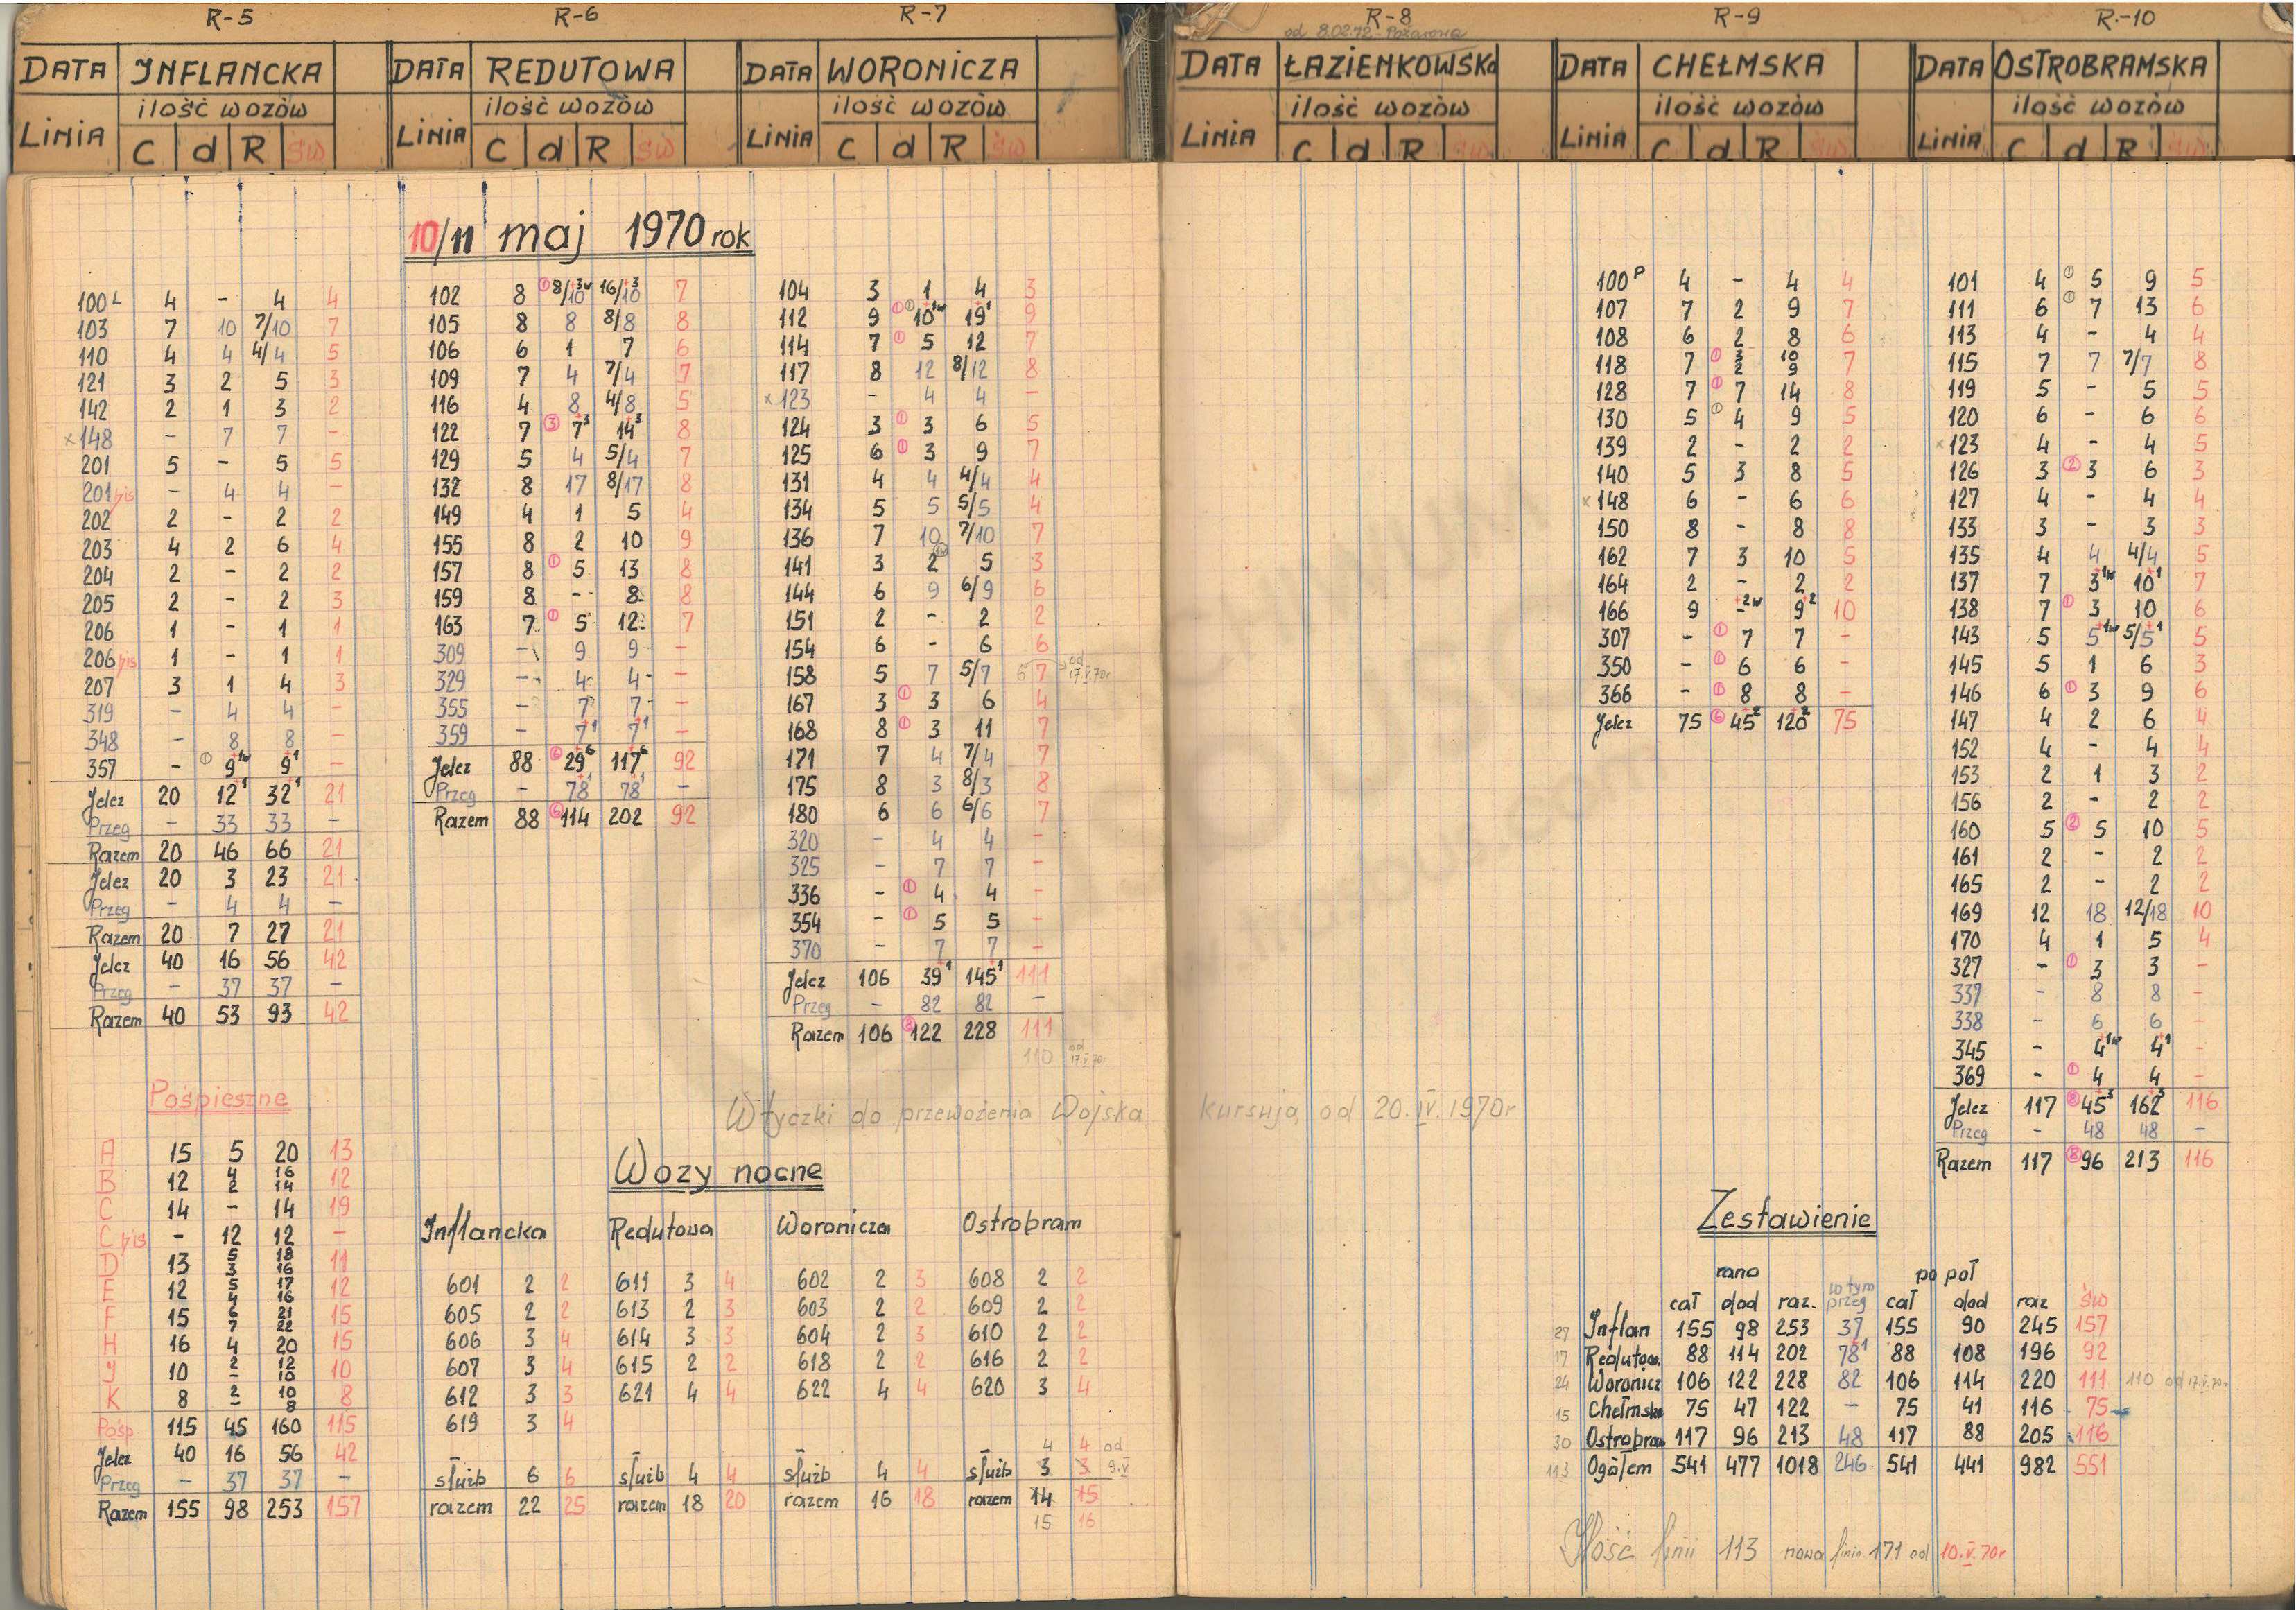 R-5 R-6 R-7 R-8 R-9 R-10
od 8.02.72 - Pożarowa
DATA INFLANCKA DATA REDUTOWA DATA WORONICZA DATA ŁAZIENKOWSKa DATA CHEŁMSKA DATA OSTROBRAMSKA
ilość wozów ilość wozów ilość wozów ilość wozów ilość wozów ilość wozów
LINIA C d R św LINIA C d R św LINIA C d R św LINIA C d R św LINIA C d R św LINIA C d R św
10/11 maj 1970 rok
100 L 4 - 4 4
103 7 10 7/10 7
110 4 4 4/4 5
121 3 2 5 3
142 2 1 3 2
x 148 - 7 7 -
201 5 - 5 5
201 bis - 4 4 -
202 2 - 2 2
203 4 2 6 4
204 2 - 2 2
205 2 - 2 3
206 1 - 1 1
206 bis 1 - 1 1
207 3 1 4 3
319 - 4 4 -
348 - 8 8 -
357 - ① 9 +1w 9 +1 -
Jelcz 20 12 +1 32 +1 21
Przeg - 33 33 -
Razem 20 46 66 21
Jelcz 20 3 23 21
Przeg - 4 4 -
Razem 20 7 27 21
Jelcz 40 16 56 42
Przeg - 37 37 -
Razem 40 53 93 42
Pośpieszne
A 15 5 20 13
B 12 4/2 16/14 12
C 14 - 14 19
C bis - 12 12 -
D 13 5/3 18/16 11
E 12 5/4 17/16 12
F 15 6/7 21/22 15
H 16 4 20 15
J 10 2/- 12/10 10
K 8 2/- 10/8 8
Pośp 115 45 160 115
Jelcz 40 16 56 42
Przeg - 37 37 -
Razem 155 98 253 157
102 8 ① 8/10 +3w 16/10 +3 7
105 8 8 8/8 8
106 6 1 7 6
109 7 4 7/4 7
116 4 8 4/8 5
122 7 ③ 7 +3 14 +3 8
129 5 4 5/4 7
132 8 17 8/17 8
149 4 1 5 4
155 8 2 10 9
157 8 ① 5 13 8
159 8 - 8 8
163 7 ① 5 12 7
309 - 9 9 -
329 - 4 4 -
355 - 7 7 -
359 - 7 +1 7 +1 -
Jelcz 88 ⑥ 29 +6 117 +6 92
Przeg - 78 +1 78 +1 -
Razem 88 ⑥ 114 202 92
104 3 1 4 3
112 9 ① ① 10 +1w 19 +1 9
114 7 ① 5 12 7
117 8 12 8/12 8
x 123 - 4 4 -
124 3 ① 3 6 5
125 6 ① 3 9 7
131 4 4 4/4 4
134 5 5 5/5 4
136 7 10 7/10 7
141 3 2 1w 5 3
144 6 9 6/9 6
151 2 - 2 2
154 6 - 6 6
158 5 7 5/7 6 7 od 17.V.70r
167 3 ① 3 6 4
168 8 ① 3 11 7
171 7 4 7/4 7
175 8 3 8/3 8
180 6 6 6/6 7
320 - 4 4 -
325 - 7 7 -
336 - ① 4 4 -
354 - ① 5 5 -
370 - 7 7 -
Jelcz 106 39 +1 145 +1 111
Przeg - 82 82 -
Razem 106 ⑧ 122 228 111
110 od 17.V.70r
Wtyczki do przewożenia Wojska kursują od 20.IV.1970r
Wozy nocne
Inflancka Redutowa Woronicza Ostrobram
601 2 2 611 3 4 602 2 3 608 2 2
605 2 2 613 2 3 603 2 2 609 2 2
606 3 4 614 3 3 604 2 3 610 2 2
607 3 4 615 2 2 618 2 2 616 2 2
612 3 3 621 4 4 622 4 4 620 3 4
619 3 4
4 4 od
służb 6 6 służb 4 4 służb 4 4 służb 3 3 9.V
razem 22 25 razem 18 20 razem 16 18 razem 14 15
15 16
100 P 4 - 4 4
107 7 2 9 7
108 6 2 8 6
118 7 ① 3/2 10/9 7
128 7 ① 7 14 8
130 5 ① 4 9 5
139 2 - 2 2
140 5 3 8 5
x 148 6 - 6 6
150 8 - 8 8
162 7 3 10 5
164 2 - 2 2
166 9 - +2w 9 +2 10
307 - ① 7 7 -
350 - ① 6 6 -
366 - ① 8 8 -
Jelcz 75 ⑥ 45 +2 120 +2 75
101 4 ① 5 9 5
111 6 ① 7 13 6
113 4 - 4 4
115 7 7 7/7 8
119 5 - 5 5
120 6 - 6 6
x 123 4 - 4 5
126 3 ② 3 6 3
127 4 - 4 4
133 3 - 3 3
135 4 4 4/4 5
137 7 3 +1w 10 +1 7
138 7 ① 3 10 6
143 5 5 +1w 5/5 +1 5
145 5 1 6 3
146 6 ① 3 9 6
147 4 2 6 4
152 4 - 4 4
153 2 1 3 2
156 2 - 2 2
160 5 ② 5 10 5
161 2 - 2 2
165 2 - 2 2
169 12 18 12/18 10
170 4 1 5 4
327 - ① 3 3 -
337 - 8 8 -
338 - 6 6 -
345 - 4 +1w 4 +1 -
369 - ① 4 4 -
Jelcz 117 ⑧ 45 +3 162 +3 116
Przeg - 48 48 -
Razem 117 ⑧ 96 213 116
Zestawienie
rano po poł
cał dod raz. w tym przeg cał dod raz św
27 Inflan 155 98 253 37 155 90 245 157
17 Redutow. 88 114 202 78 +1 88 108 196 92
24 Woronicz 106 122 228 82 106 114 220 111 110 od 17.V.70r
15 Chełmska 75 47 122 - 75 41 116 75
30 Ostrobram 117 96 213 48 117 88 205 116
113 Ogółem 541 477 1018 246 541 441 982 551
Ilość linii 113 nowa linia 171 od 10.V.70r